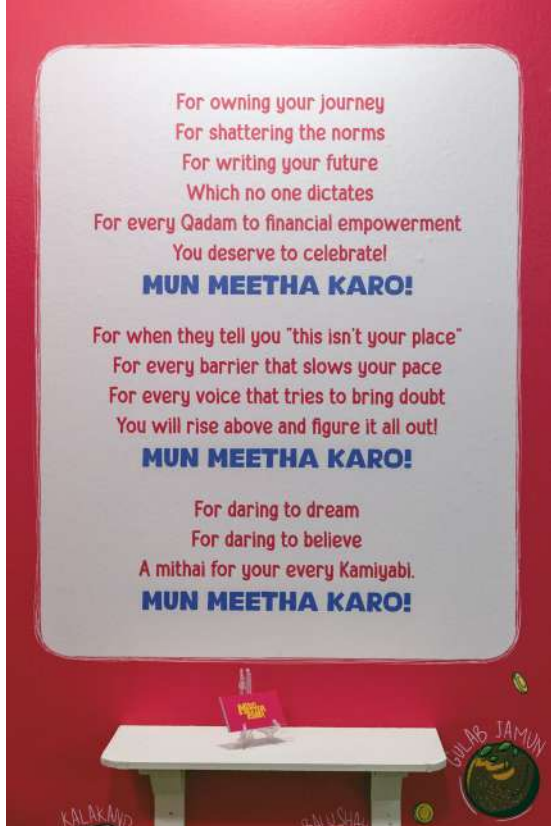 For owning your journey
For shattering the norms
For writing your future
Which no one dictates
For every Qadam to financial empowerment
You deserve to celebrate!
MUN MEETHA KARO!
For when they tell you "this isn't your place"
For every barrier that slows your pace
For every voice that tries to bring doubt
You will rise above and figure it all out!
MUN MEETHA KARO!
For daring to dream
For daring to believe
A mithai for your every Kamiyabi.
MUN MEETHA KARO!
GULAB JAMUN
KALAKAND